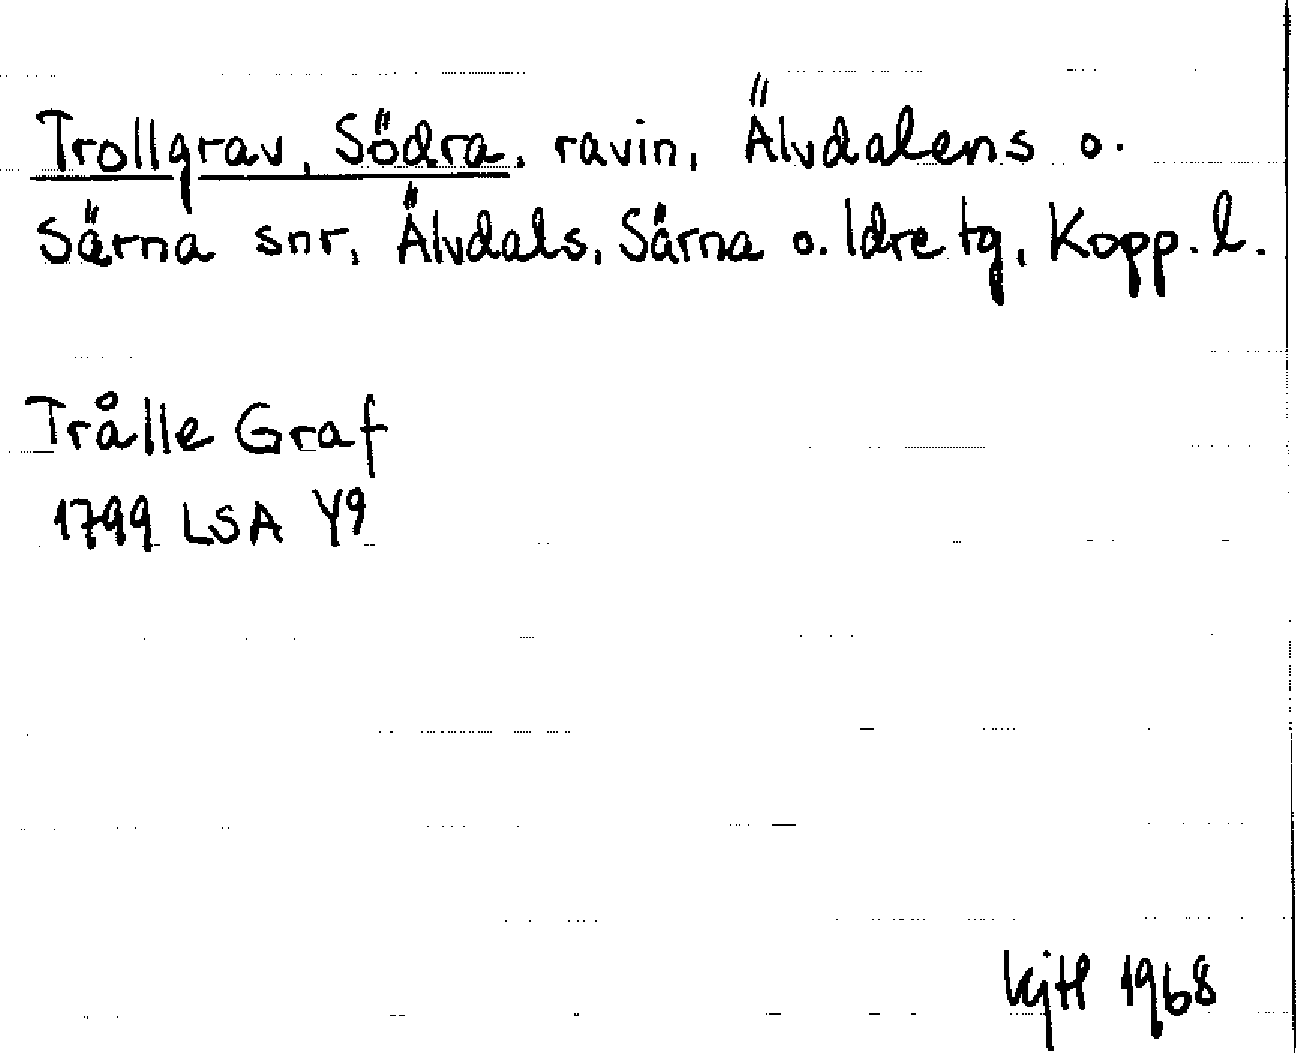 Trollgrav, Södra, ravin, Älvdalens o.
Särna snr, Älvdals, Särna o. Idre tg, Kopp. l.
Trålle Graf
1799 LSA Y9
1968